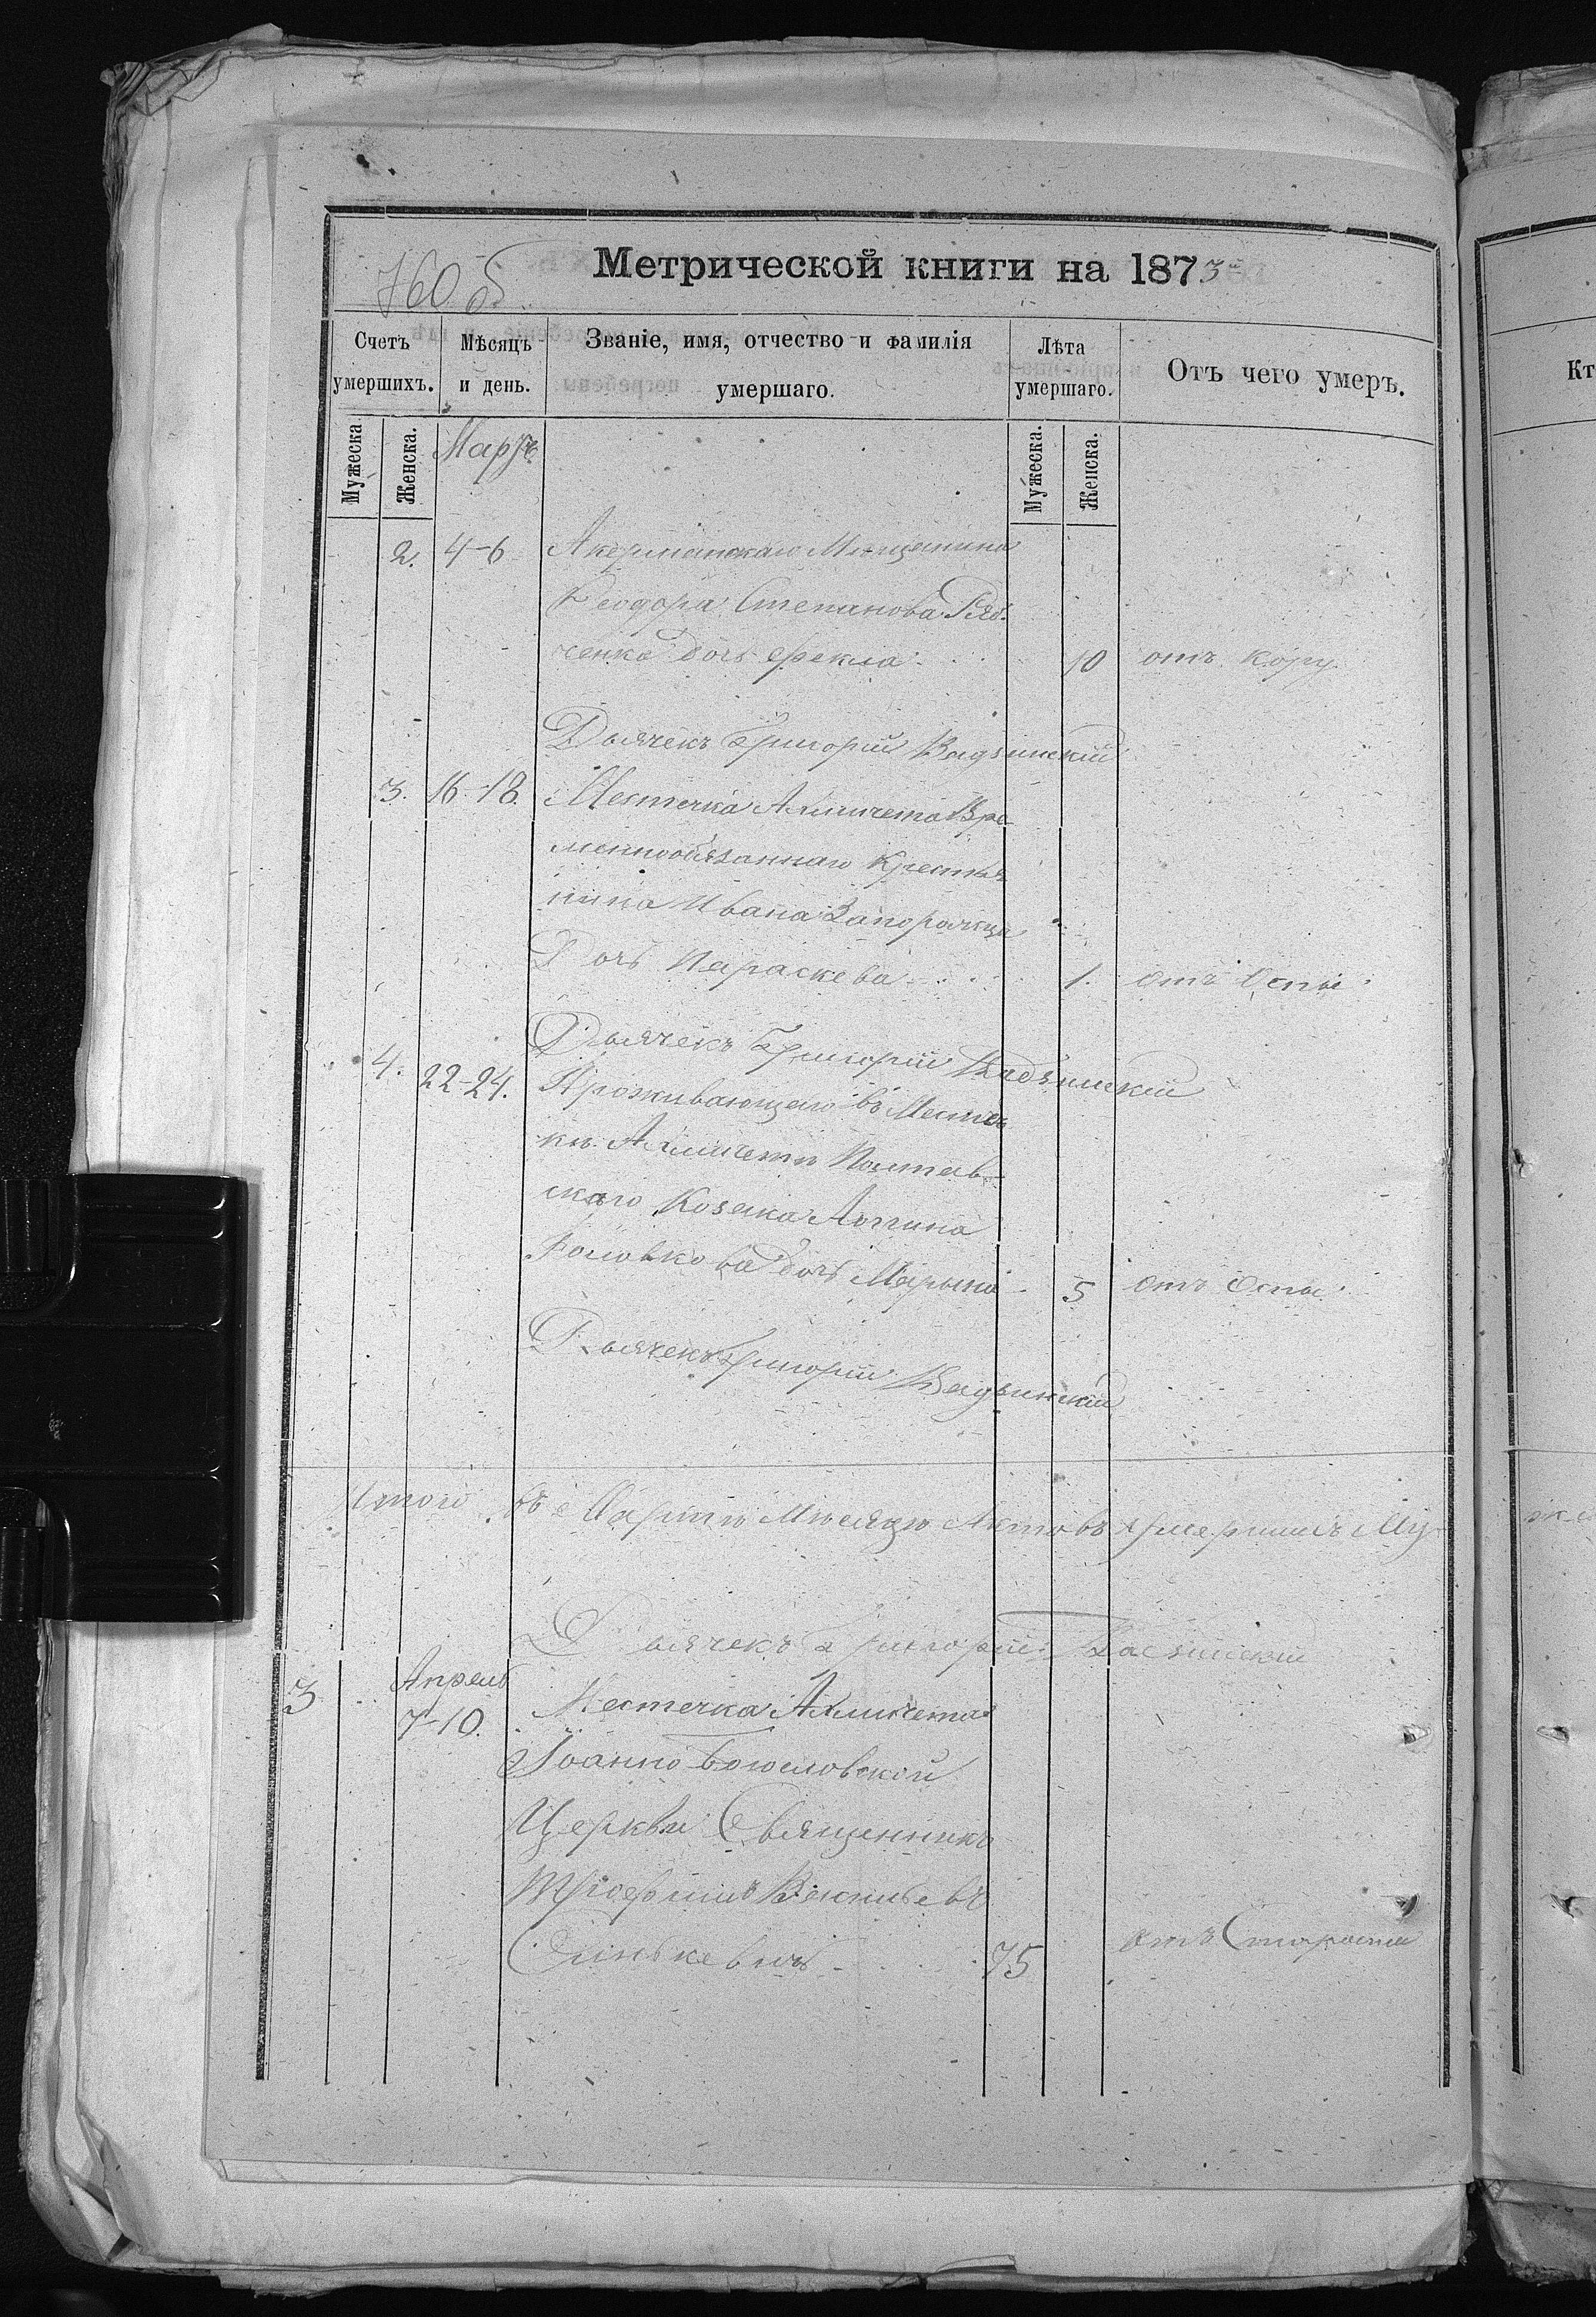 760 об
Метрической книги на 1873й
Счетъ умершихъ.
Мѣсяцъ и день.
Званіе, имя, отчество и фамилія умершаго.
Лѣта умершаго.
Отъ чего умеръ.
Мужеска.
Женска.
Мартъ
Мужеска.
Женска.
2. 4-6 Акерманскаго Мещанина
Феодора Степанова Ряб-
ченка дочь Фекла 10 отъ кору
Дьячекъ Григорій
3. 16-18. Местечка Ахмичета Вре
меннообязаннаго Крестья
нина Ивана Запорожца
Дочь Параскева 1. отъ Оспы
Дьячекъ Григорій
4. 22-24. Проживающаго въ Местеч
кѣ Ахмичетѣ Полтав-
скаго Козака Логина
Головкова дочь Марына 5 отъ Оспы
Дьячекъ Григорій
Итого въ Мартѣ Мѣсяцѣ Актовъ Умершихъ Му-
Дьячекъ Григорій
Апрель
3 7-10. Местечка Ахмичета
Іоанно Богословской
Церкви Священникъ
Трофимъ
Синькевичъ 75 отъ Старости
Кт